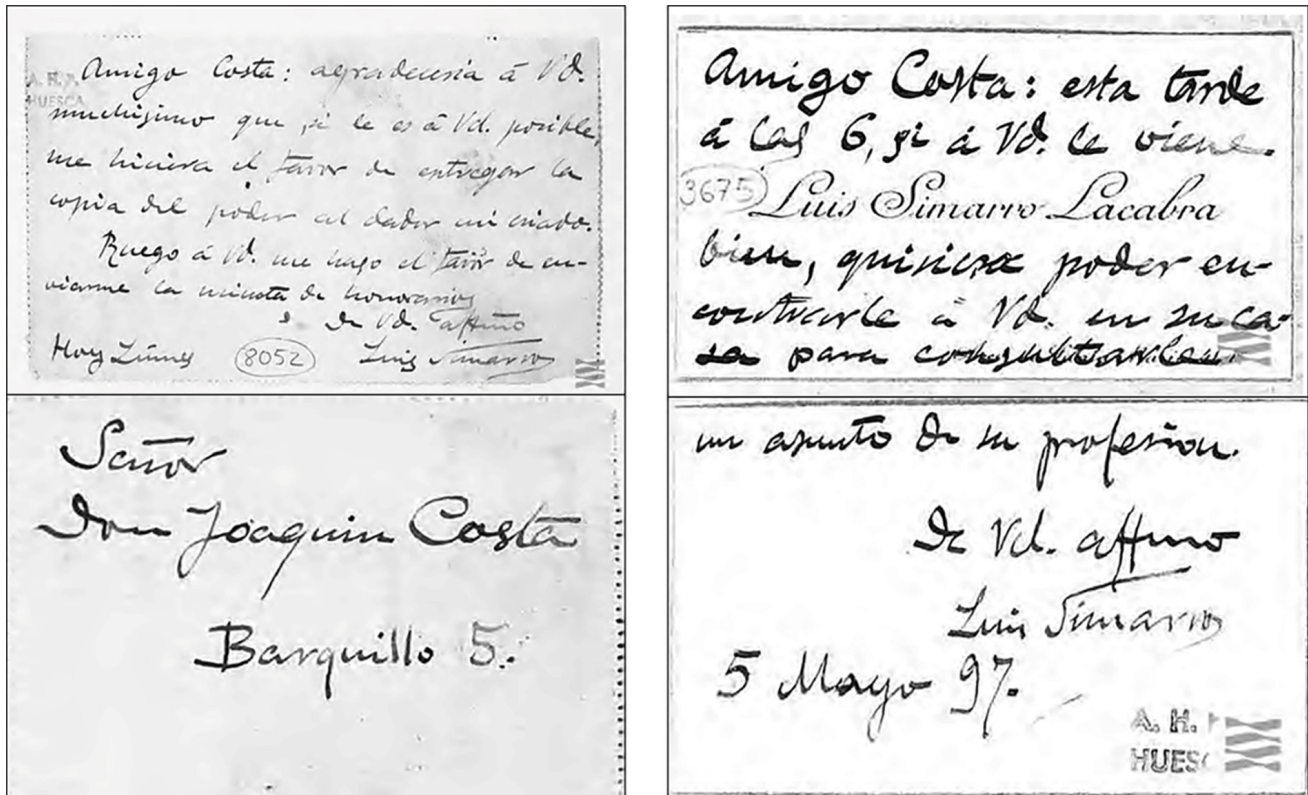 Amigo Costa: agradeceria á Vd.
A. H. P.
HUESCA
muchisimo que, si le es á Vd. posible,
me hiciera el favor de entregar la
copia del poder al dador mi criado.
Ruego á Vd. me haga el favor de en-
viarme la minuta de honorarios
de Vd. affmo
Hoy Lúnes
8052
Luis Simarro
Señor
Don Joaquin Costa
Barquillo 5.
Amigo Costa: esta tarde
á las 6, si á Vd. le viene
3675
Luis Simarro Lacabra
bien, quisiera poder en-
contrarle á Vd. en su ca-
sa para consultarle
un asunto de su profesion.
De Vd. affmo
Luis Simarro
5 Mayo 97.
A. H.
HUES